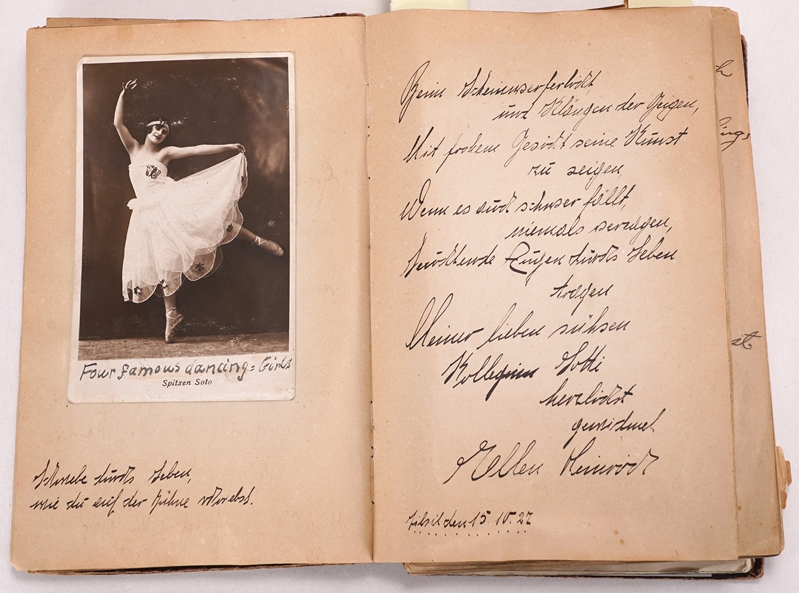 Four famous dancing=Girls
Spitzen Solo
Schwebe durchs Leben,
wie du auf der Bühne schwebst.
Beim Scheinwerferlicht
und Klängen der Geigen,
Mit frohem Gesicht seine Kunst
zu zeigen,
Wenn es auch schwer fällt,
niemals verzagen,
Leuchtende Augen durchs Leben
tragen
Meiner lieben süßen
Kollegin
herzlichst
gewidmet
Ellen
den 15.10.27